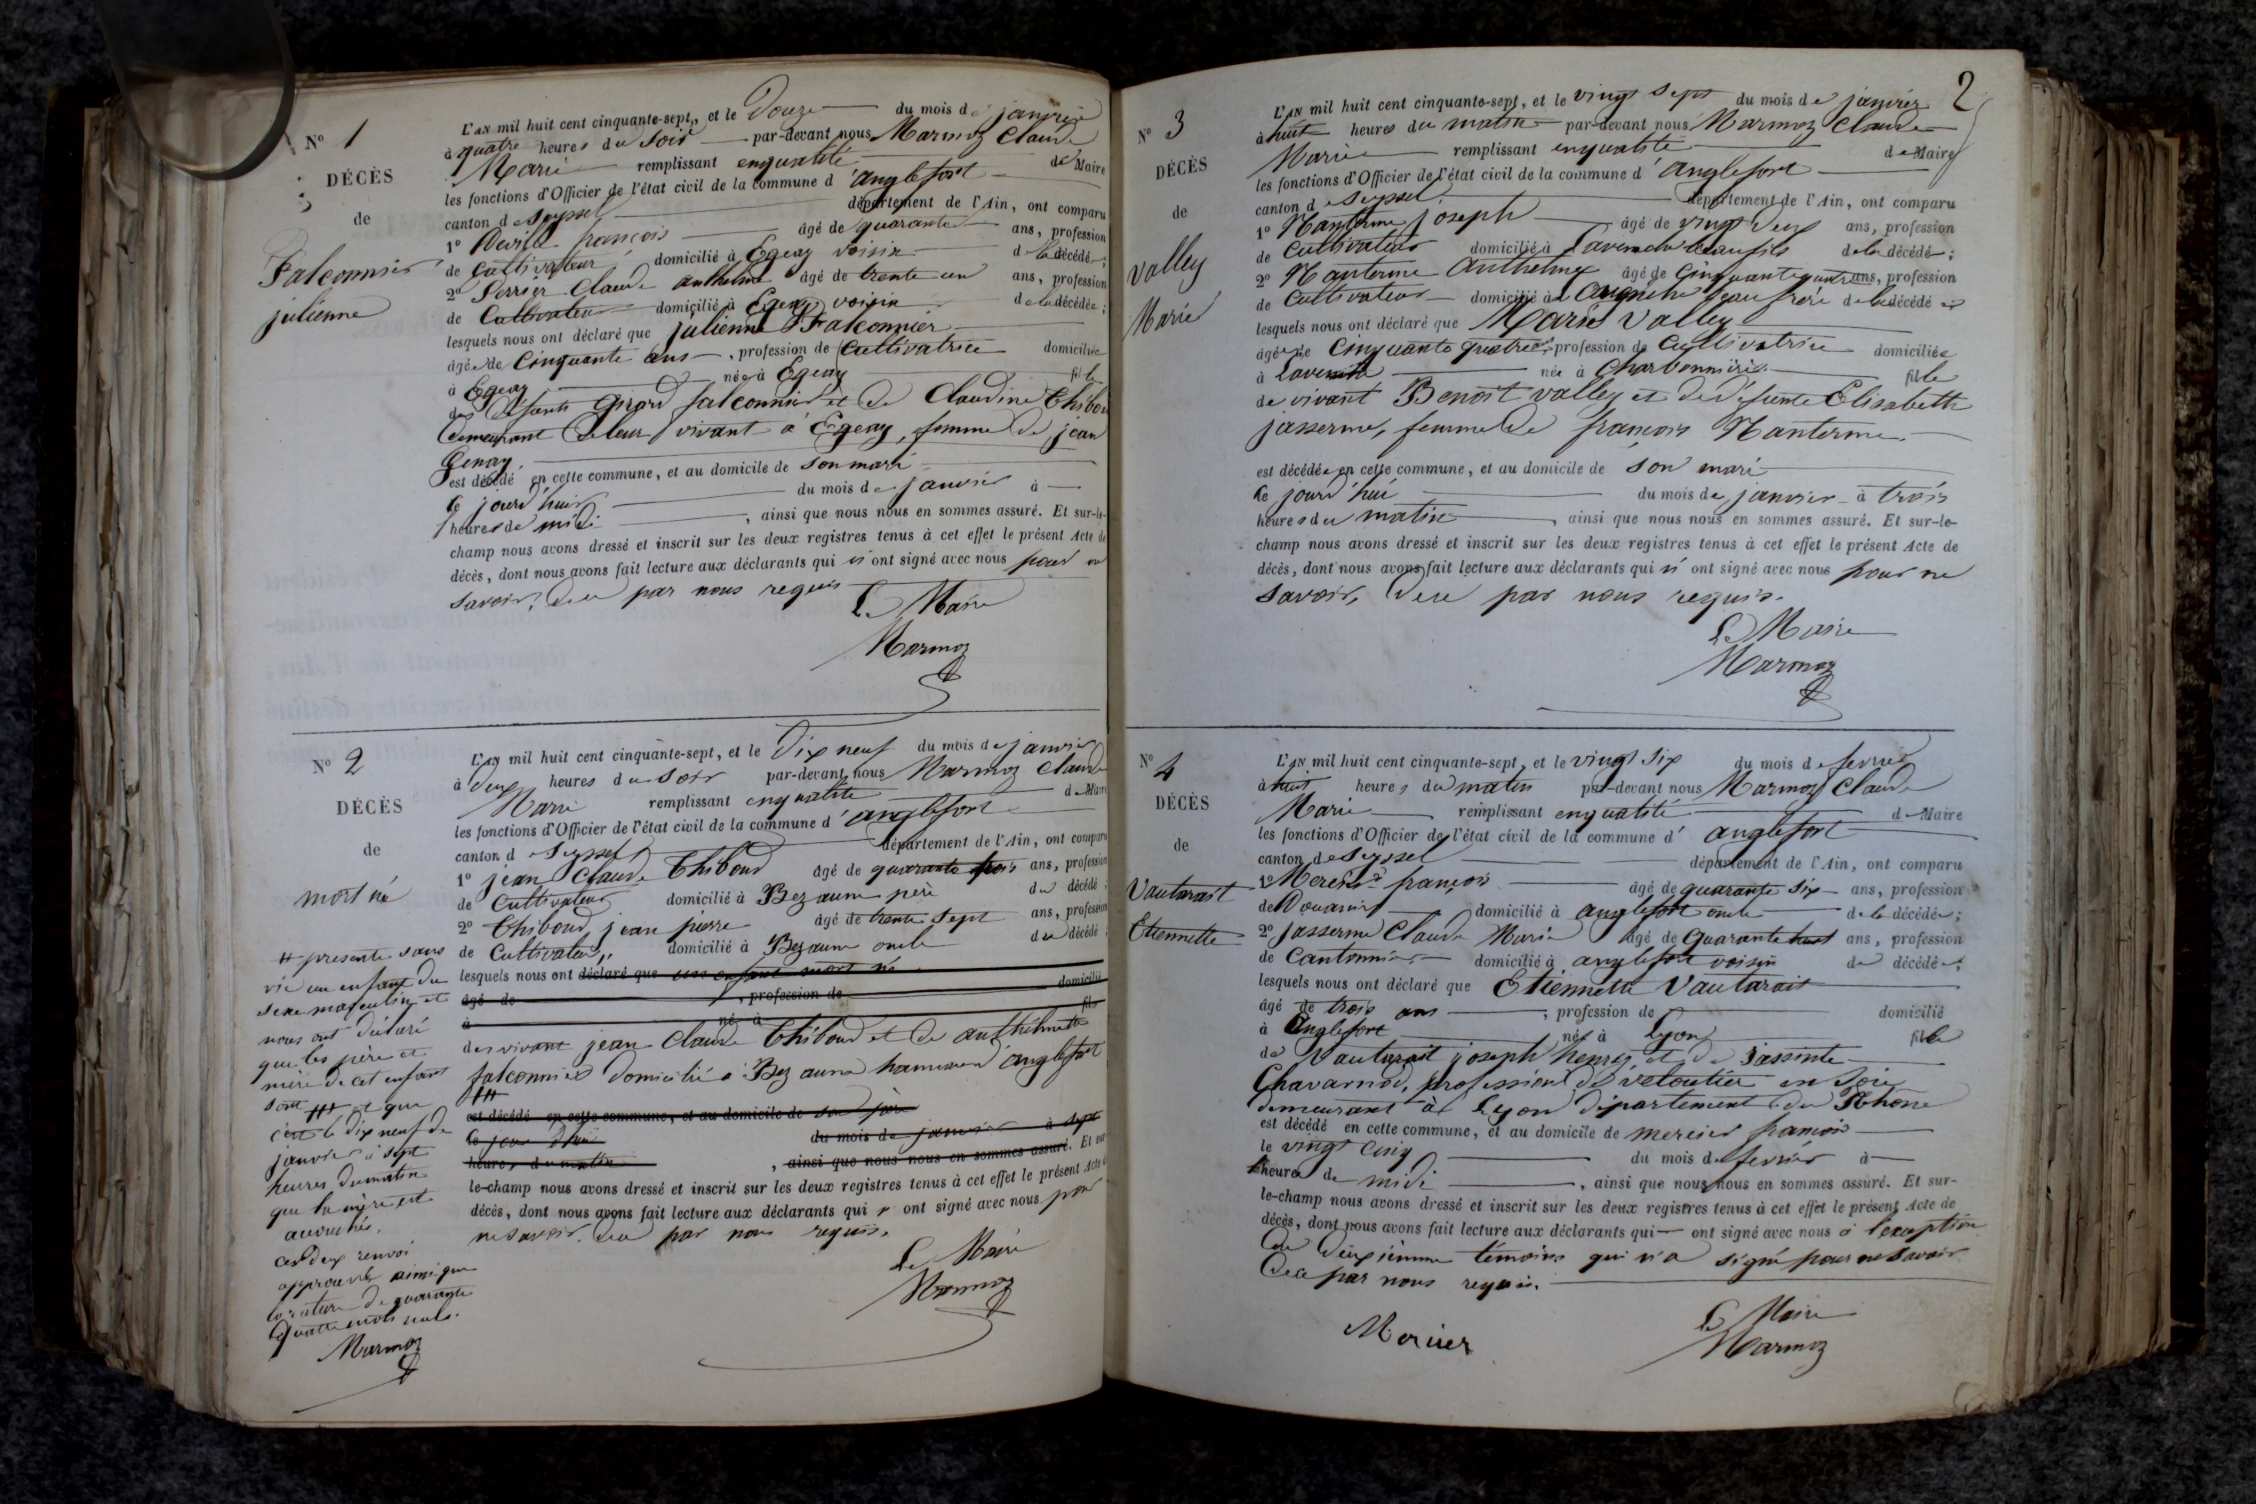 N° 1
DÉCÈS
de
Falconnier
julienne
L'AN mil huit cent cinquante-sept, et le Douze du mois de janvier
à quatre heures du soir par-devant nous Marmoz Claude
Marie remplissant enqualité de Maire
les fonctions d'Officier de l'état civil de la commune d'anglefort
canton de Seyssel département de l'Ain, ont comparu
1° françois âgé de quarante ans, profession
de Cultivateur domicilié à Egeay voisin de la décédée;
2° Perrier Claude anthelme âgé de trente un ans, profession
de Cultivateur domicilié à Egeay voisin de la décédée;
lesquels nous ont déclaré que julienne Falconnier
âgée de Cinquante ans, profession de Cultivatrice domiciliée
à Egeay née à Egeay fille
des défunts falconnier et de Claudine Thiboud
demeurant de leur vivant à Egeay, femme de jean
Genay.
est décédé en cette commune, et au domicile de son mari
ce jourd'hui du mois de janvier à
heures de midi, ainsi que nous nous en sommes assuré. Et sur-le-
champ nous avons dressé et inscrit sur les deux registres tenus à cet effet le présent Acte de
décès, dont nous avons fait lecture aux déclarants qui n' ont signé avec nous pour ne
savoir, de ce par nous requis
Le Maire
Marmoz
N° 2
DÉCÈS
de
mort né
# presenté sans
vie un enfant du
sexe masculin et
nous ont déclaré
que les père et
mère de cet enfant
sont ### et que
c'est le dix neuf de
janvier à sept
heures du matin
que la mère est
accouchée.
ces deux renvoi
approuvés ainsi que
la rature de quarante
quatre mots nuls.
Marmoz
L'AN mil huit cent cinquante-sept, et le Dix neuf du mois de janvier
à deux heures du soir par-devant nous Marmoz Claude
Marie remplissant enqualité de Maire
les fonctions d'Officier de l'état civil de la commune d'anglefort
canton de Seyssel département de l'Ain, ont comparu
1° jean Claude Thiboud âgé de quarante trois ans, profession
de Cultivateur domicilié à Bezaune père du décédé;
2° Thiboud jean pierre âgé de trente sept ans, profession
de Cultivateur, domicilié à Bezaune oncle du décédé
lesquels nous ont déclaré que un enfant mort né
âgé de, profession de domicilié
à né à fils
des vivant jean Claude Thiboud et de anthelmette
falconnier domicilié à Bezaune hameau d'anglefort
###
est décédé en cette commune, et au domicile de son père
ce jour d'hui du mois de janvier à sept
heures du matin, ainsi que nous nous en sommes assuré. Et sur
le-champ nous avons dressé et inscrit sur les deux registres tenus à cet effet le présent Acte de
décès, dont nous avons fait lecture aux déclarants qui n ont signé avec nous pour
ne savoir. de ce par nous requis.
Le Maire
Marmoz
2
N° 3
DÉCÈS
de
Valley
Marie
L'AN mil huit cent cinquante-sept, et le vingt Sept du mois de janvier
à huit heures du matin par-devant nous Marmoz Claude
Marie remplissant enqualité de Maire
les fonctions d'Officier de l'état civil de la commune d'anglefort
canton de Seyssel département de l'Ain, ont comparu
1° Nanterme joseph âgé de vingt deux ans, profession
de Cultivateur domicilié à beau fils de la décédé;
2° Nanterme Anthelme âgé de Cinquante quatre ans, profession
de Cultivateur domicilié à beau frère de la décédé
lesquels nous ont déclaré que Marie Valley
âgée de Cinquante quatre ans, profession de Cultivatrice domiciliée
à née à Charbonnière fille
de vivant Benoît Valley et de défunte Elisabeth
jasserme, femme de françois Nanterme.
est décédée en cette commune, et au domicile de son mari
ce jourd'hui du mois de janvier à trois
heures du matin, ainsi que nous nous en sommes assuré. Et sur-le-
champ nous avons dressé et inscrit sur les deux registres tenus à cet effet le présent Acte de
décès, dont nous avons fait lecture aux déclarants qui n' ont signé avec nous pour ne
savoir, de ce par nous requis.
Le Maire
Marmoz
N° 4
DÉCÈS
de
Vautarait
Etiennette
L'AN mil huit cent cinquante-sept, et le vingt six du mois de fevrier
à huit heures du matin par-devant nous Marmoz Claude
Marie remplissant enqualité de Maire
les fonctions d'Officier de l'état civil de la commune d'anglefort
canton de Seyssel département de l'Ain, ont comparu
1° Mercier françois âgé de quarante six ans, profession
de Douanier domicilié à anglefort oncle de la décédée;
2° Jasserme Claude Marie âgé de Quarante huit ans, profession
de Cantonnier domicilié à anglefort voisin de décédée;
lesquels nous ont déclaré que Etiennette Vautarait
âgé de trois ans, profession de domicilié
à Anglefort né à Lyon fille
de Vautarait joseph henry et de Jassinte
Chavarnod, profession de veloutier en soie
demeurant à Lyon département du Rhône
est décédé en cette commune, et au domicile de mercier francois
le vingt cinq du mois de fevrier à
heures de midi, ainsi que nous nous en sommes assuré. Et sur-
le-champ nous avons dressé et inscrit sur les deux registres tenus à cet effet le présent Acte de
décès, dont nous avons fait lecture aux déclarants qui ont signé avec nous à l'exception
du deuxième témoins qui n'a signé pour ne savoir
de ce par nous requis.
Mercier
Le Maire
Marmoz